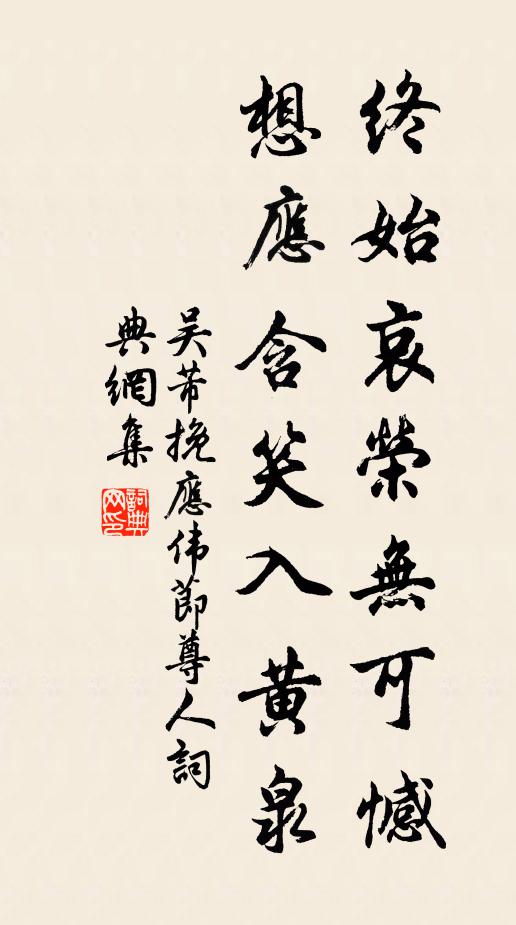 終始哀榮無可憾
想應含笑入黃泉
吳芾挽應伟節尊人詞
典網集
詞典
网印